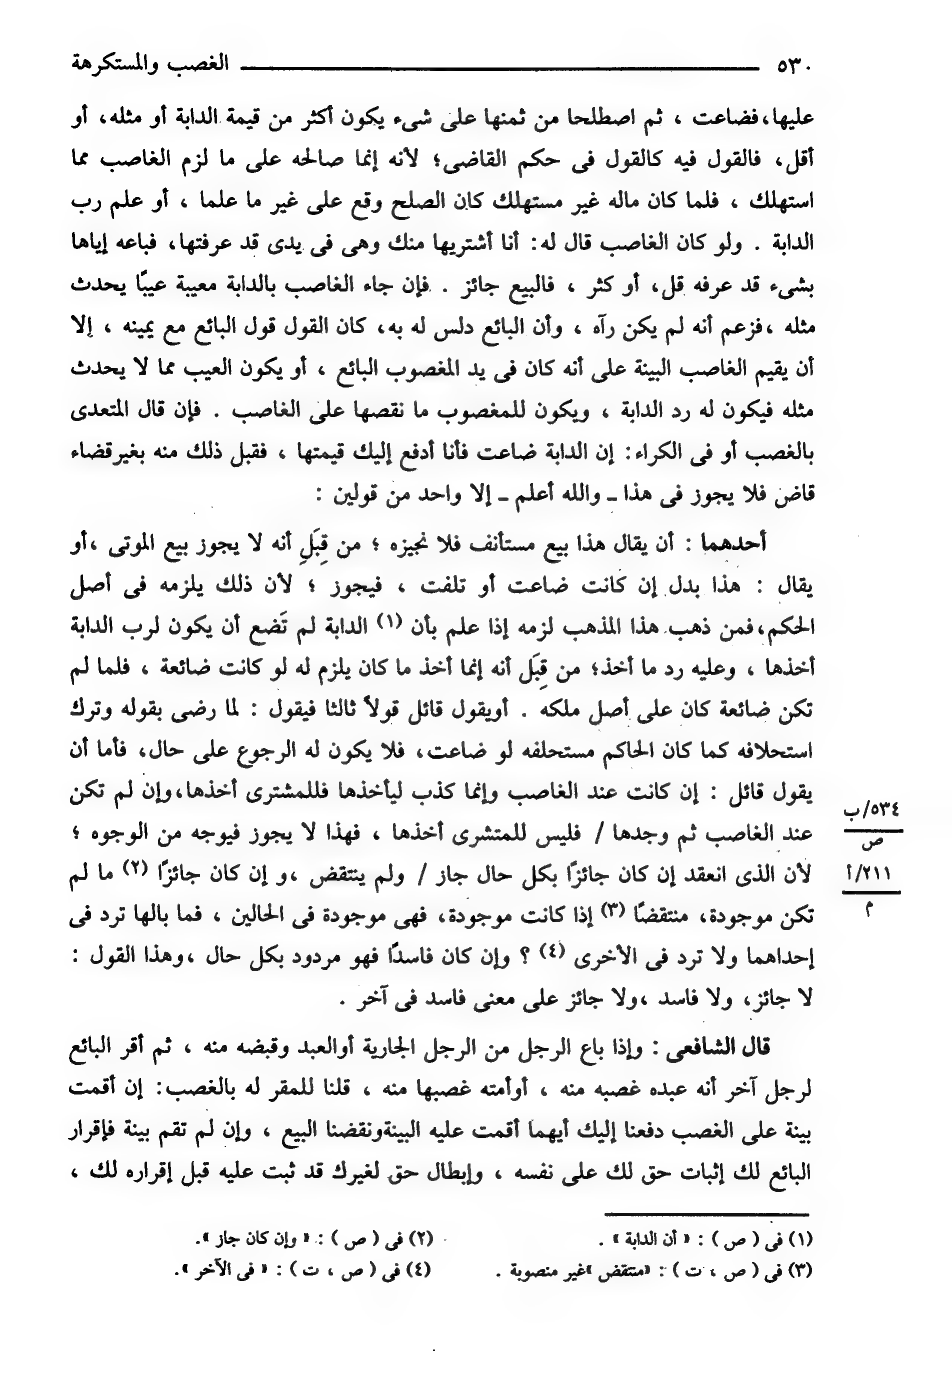 ٥٣٠ ـــــــــــــــــــــــــــــــــــــــــ الغصب والمستكرهة
عليها،فضاعت ، ثم اصطلحا من ثمنها على شىء يكون أكثر من قيمة الدابة أو مثله، أو
أقل، فالقول فيه كالقول فى حكم القاضى؛ لأنه إنما صالحه على ما لزم الغاصب مما
استهلك ، فلما كان ماله غير مستهلك كان الصلح وقع على غير ما علما ، أو علم رب
الدابة . ولو كان الغاصب قال له: أنا أشتريها منك وهى فى يدى قد عرفتها، فباعه إياها
بشىء قد عرفه قل، أو كثر ، فالبيع جائز . فإن جاء الغاصب بالدابة معيبة عيبًا يحدث
مثله ،فزعم أنه لم يكن رآه ، وأن البائع دلس له به، كان القول قول البائع مع يمينه ، إلا
أن يقيم الغاصب البينة على أنه كان فى يد المغصوب البائع ، أو يكون العيب مما لا يحدث
مثله فيكون له رد الدابة ، ويكون للمغصوب ما نقصها على الغاصب . فإن قال المتعدى
بالغصب أو فى الكراء: إن الدابة ضاعت فأنا أدفع إليك قيمتها ، فقبل ذلك منه بغيرقضاء
قاض فلا يجوز فى هذا ـ والله أعلم ـ إلا واحد من قولين :
أحدهما : أن يقال هذا بيع مستأنف فلا نجيزه ؛ من قِبَلِ أنه لا يجوز بيع الموتى ،أو
يقال : هذا بدل إن كانت ضاعت أو تلفت ، فيجوز ؛ لأن ذلك يلزمه فى أصل
الحكم،فمن ذهب هذا المذهب لزمه إذا علم بأن (١) الدابة لم تَضع أن يكون لرب الدابة
أخذها ، وعليه رد ما أخذ؛ من قِبَل أنه إنما أخذ ما كان يلزم له لو كانت ضائعة ، فلما لم
تكن ضائعة كان على أصل ملكه . أويقول قائل قولاً ثالثا فيقول : لما رضى بقوله وترك
استحلافه كما كان الحاكم مستحلفه لو ضاعت، فلا يكون له الرجوع على حال، فأما أن
يقول قائل : إن كانت عند الغاصب وإنما كذب ليأخذها فللمشترى أخذها،وإن لم تكن
عند الغاصب ثم وجدها / فليس للمتشرى أخذها ، فهذا لا يجوز فيوجه من الوجوه ؛
لأن الذى انعقد إن كان جائزًا بكل حال جاز / ولم ينتقض ،و إن كان جائزًا (٢) ما لم
تكن موجودة، منتقضًا (٣) إذا كانت موجودة، فهى موجودة فى الحالين ، فما بالها ترد فى
إحداهما ولا ترد فى الأخرى (٤) ؟ وإن كان فاسدًا فهو مردود بكل حال ،وهذا القول :
لا جائز، ولا فاسد ،ولا جائز على معنى فاسد فى آخر .
٥٣٤/ب
ص
٢١١/أ
م
قال الشافعى : وإذا باع الرجل من الرجل الجارية أوالعبد وقبضه منه ، ثم أقر البائع
لرجل آخر أنه عبده غصبه منه ، أوأمته غصبها منه ، قلنا للمقر له بالغصب: إن أقمت
بينة على الغصب دفعنا إليك أيهما أقمت عليه البينةونقضنا البيع ، وإن لم تقم بينة فإقرار
البائع لك إثبات حق لك على نفسه ، وإبطال حق لغيرك قد ثبت عليه قبل إقراره لك ،
(١) فى ( ص ) : « أن الدابة » . (٢) فى ( ص ) : « وإن كان جاز ».
(٣) فى ( ص ، ت ) : «منتقض »غير منصوبة . (٤) فى ( ص ، ت ) : « فى الآخر ».